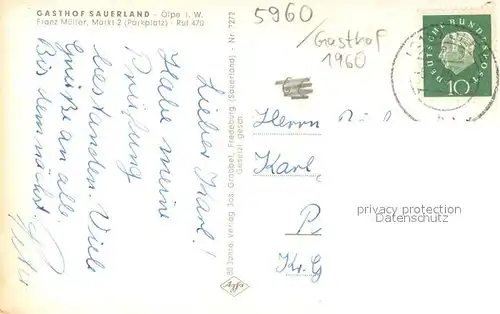 GASTHOF SAUERLAND - Olpe i. W.
Franz Müller, Markt 2 (Parkplatz) - Ruf 470
5960
/Gasthof
1960
DEUTSCHE BUNDESPOST
10
Lieber Karl!
Habe meine
Prüfung
bestanden. Viele
Grüße an alle.
Bis demnächst.
Peter
30 Jahre Verlag Jos. Grobbel, Fredeburg (Sauerland) - Nr. 7272
Gesetzl. gesch.
Agfa
Herrn
Karl
P
Kr. G
privacy protection
Datenschutz